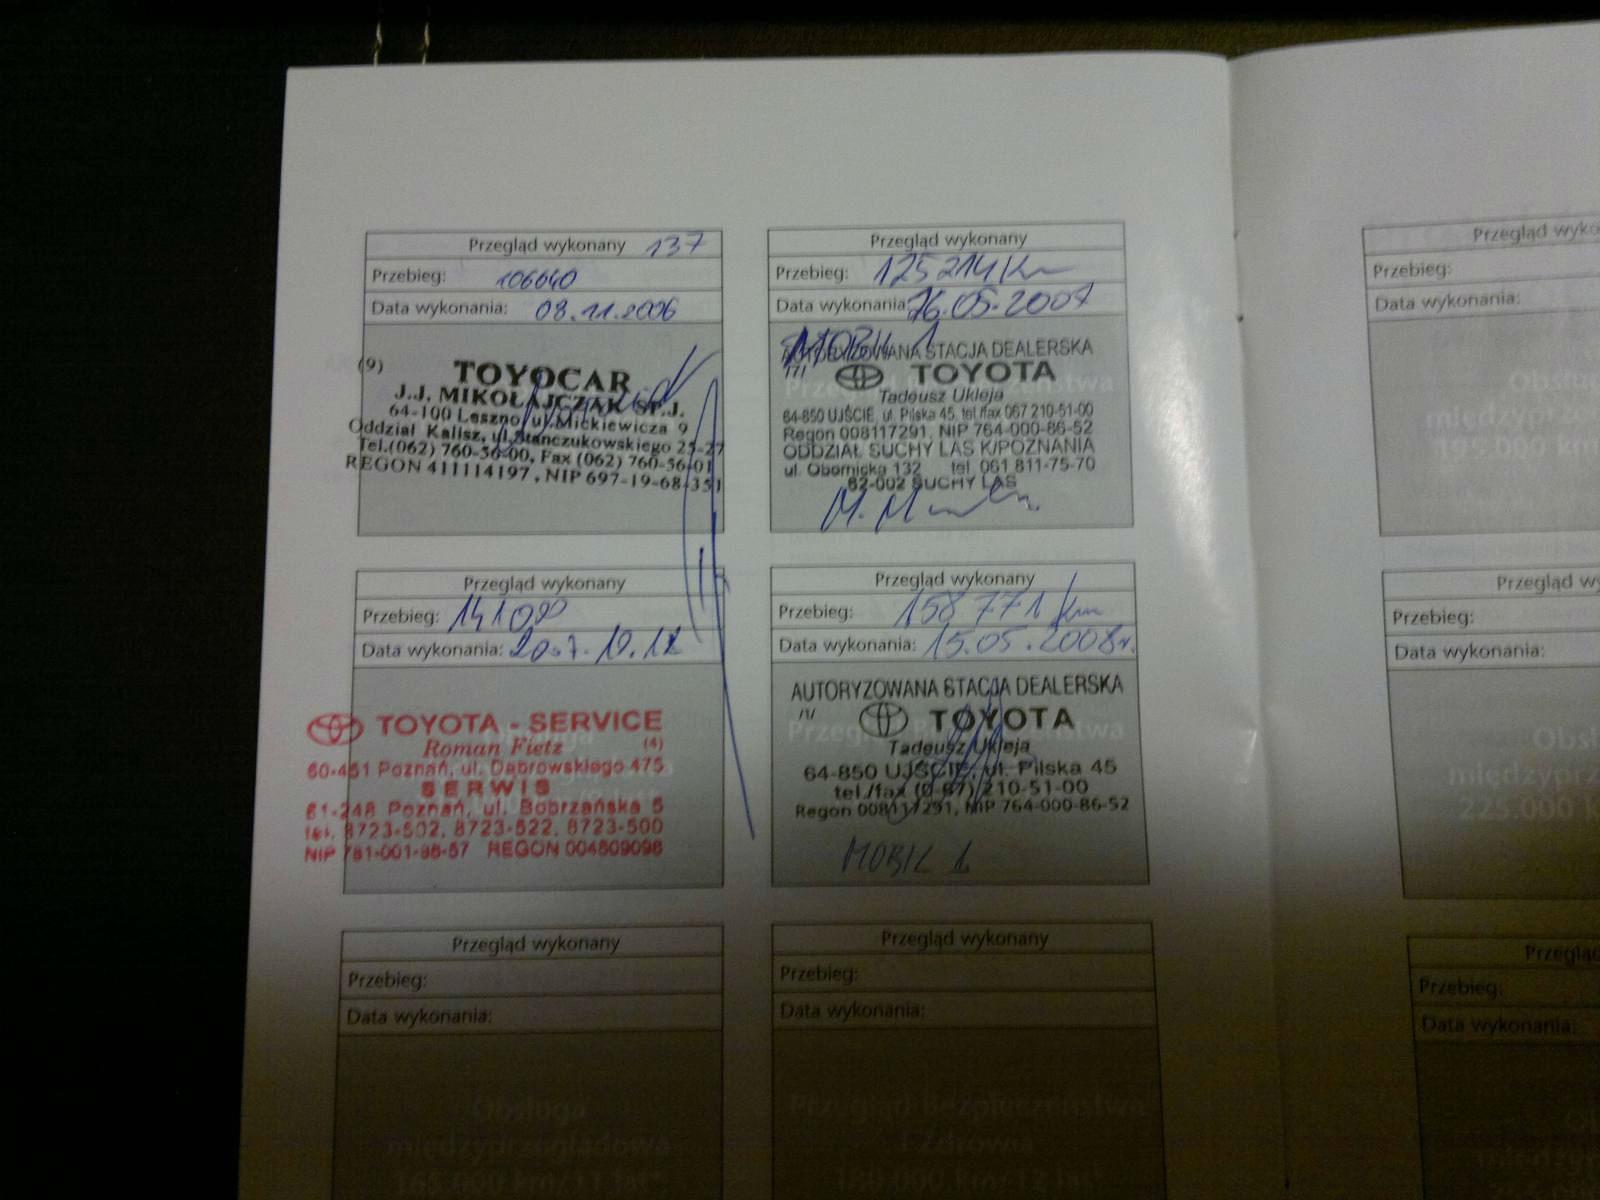 Przegląd wykonany 137
Przebieg: 106640
Data wykonania: 08.11.2006
(9) TOYOCAR
J.J. MIKOŁAJCZAK SP.J.
64-100 Leszno, ul. Mickiewicza 9
Oddział Kalisz, ul. Stańczukowskiego 25-27
Tel.(062) 760-56-00, Fax (062) 760-56-01
REGON 411114197, NIP 697-19-68-351
Przegląd wykonany
Przebieg: 125214 Km
Data wykonania: 16.05.2007
MOBIL 1
AUTORYZOWANA STACJA DEALERSKA
/7/ TOYOTA
Tadeusz Ukleja
64-850 UJŚCIE, ul. Pilska 45, tel./fax 067 210-51-00
Regon 008117291, NIP 764-000-86-52
ODDZIAŁ SUCHY LAS K/POZNANIA
ul. Obornicka 132 tel. 061 811-75-70
62-002 SUCHY LAS
Przegląd wykonany
Przebieg:
Data wykonania: 2007.10.
TOYOTA - SERVICE
Roman Fietz (4)
60-451 Poznań, ul. Dąbrowskiego 475
SERWIS
61-248 Poznań, ul. Bobrzańska 5
tel. 8723-502, 8723-522, 8723-500
NIP 781-001-98-57 REGON 004809098
Przegląd wykonany
Przebieg: 158 771 km
Data wykonania: 15.05.2008r.
AUTORYZOWANA STACJA DEALERSKA
/1/ TOYOTA
Tadeusz Ukleja
64-850 UJŚCIE, ul. Pilska 45
tel./fax (0-67) 210-51-00
Regon 008117291, NIP 764-000-86-52
MOBIL 1
Przegląd wykonany
Przebieg:
Data wykonania:
Obsługa
międzyprzeglądowa
165.000 km/11 lat*
Przegląd wykonany
Przebieg:
Data wykonania:
Przegląd Bezpieczeństwa
i Zdrowia
180.000 km/12 lat*
Przegląd wyko
Przebieg:
Data wykonania:
195.000 km
Przegląd wy
Przebieg:
Data wykonania:
225.000 k
Przegląd
Przebieg:
Data wykonania: